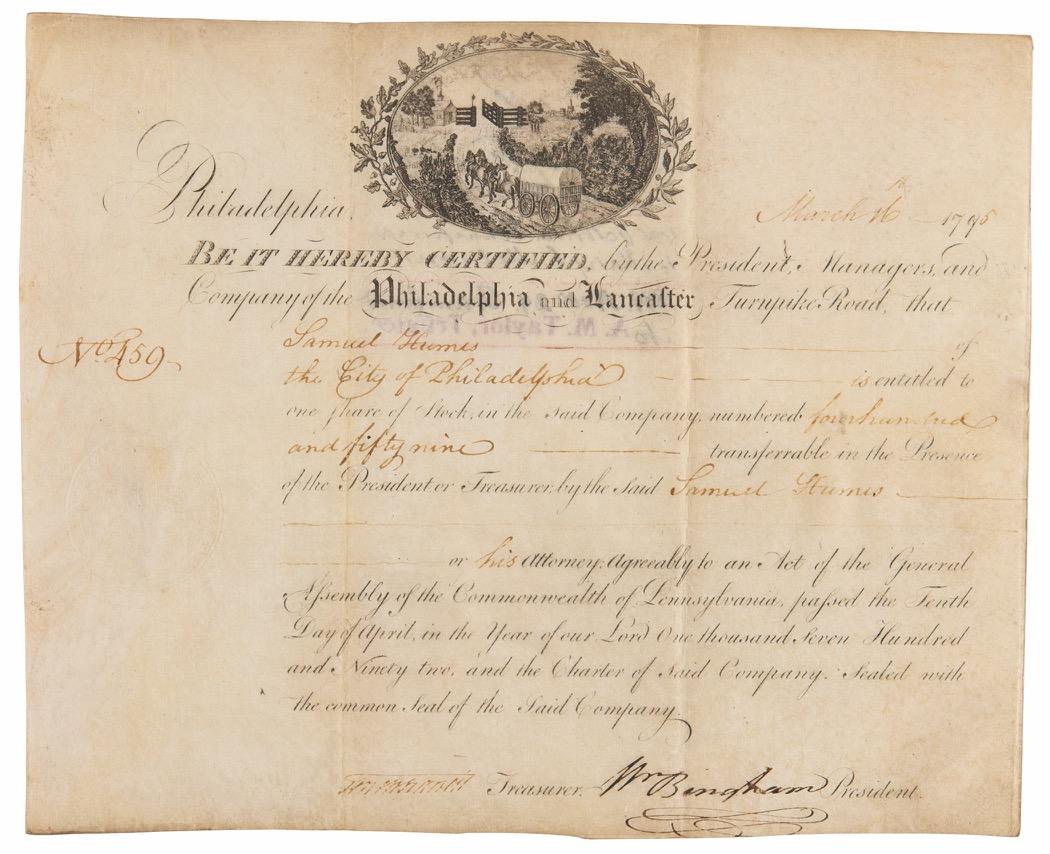 Philadelphia, March 16th 1795
BE IT HEREBY CERTIFIED, by the President, Managers, and
Company of the Philadelphia and Lancaſter Turnpike Road, that
Samuel Humes of
No. 459
the City of Philadelphia is entitled to
one ſhare of Stock, in the said Company, numbered four hundred
and fifty nine transferrable in the Presence
of the President or Treasurer, by the said Samuel Humes
or his Attorney, Agreeably to an Act of the General
Aſsembly of the Commonwealth of Pennsylvania, paſsed the Tenth
Day of April, in the Year of our Lord One thousand Seven Hundred
and Ninety two, and the Charter of said Company: Sealed with
the common Seal of the Said Company.
Treasurer. Wm Bingham President.
A. M. Taylor,